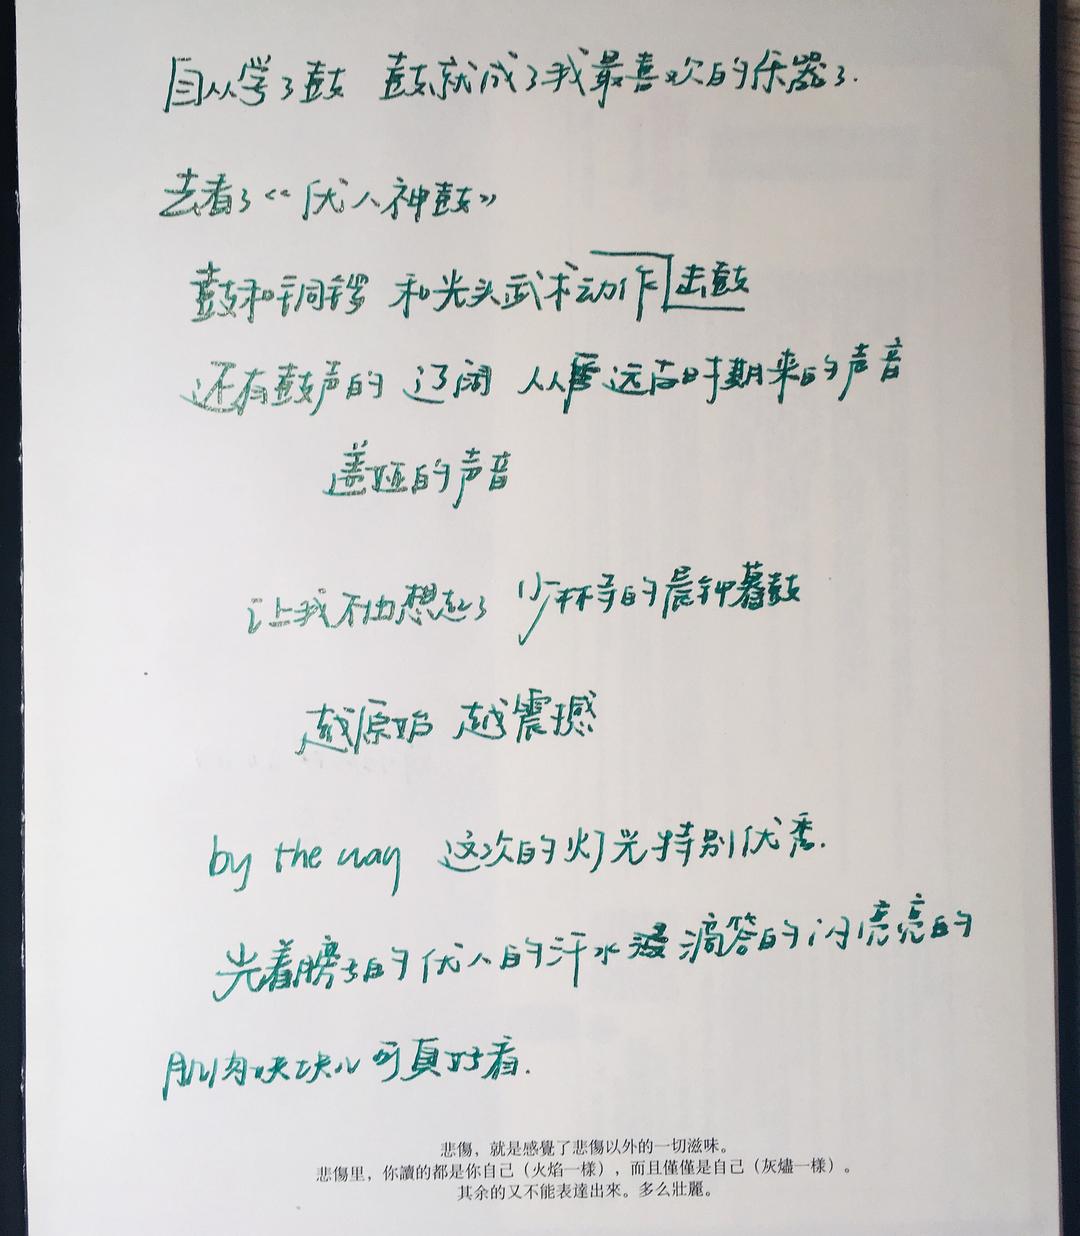 自从学了鼓 鼓就成了我最喜欢的乐器了.
去看了《优人神鼓》
鼓和铜锣 和光头武术动作 击鼓
还有鼓声的 辽阔 从 远古时期来的声音
盖娅的声音
让我不由想起了 少林寺的晨钟暮鼓
越原始 越震撼
by the way 这次的灯光特别优秀.
光着膀子的优人的汗水 滴答的闪亮亮的
肌肉块块儿可真好看.
悲傷，就是感覺了悲傷以外的一切滋味。
悲傷里，你讀的都是你自己（火焰一樣），而且僅僅是自己（灰燼一樣）。
其余的又不能表達出來。多么壯麗。